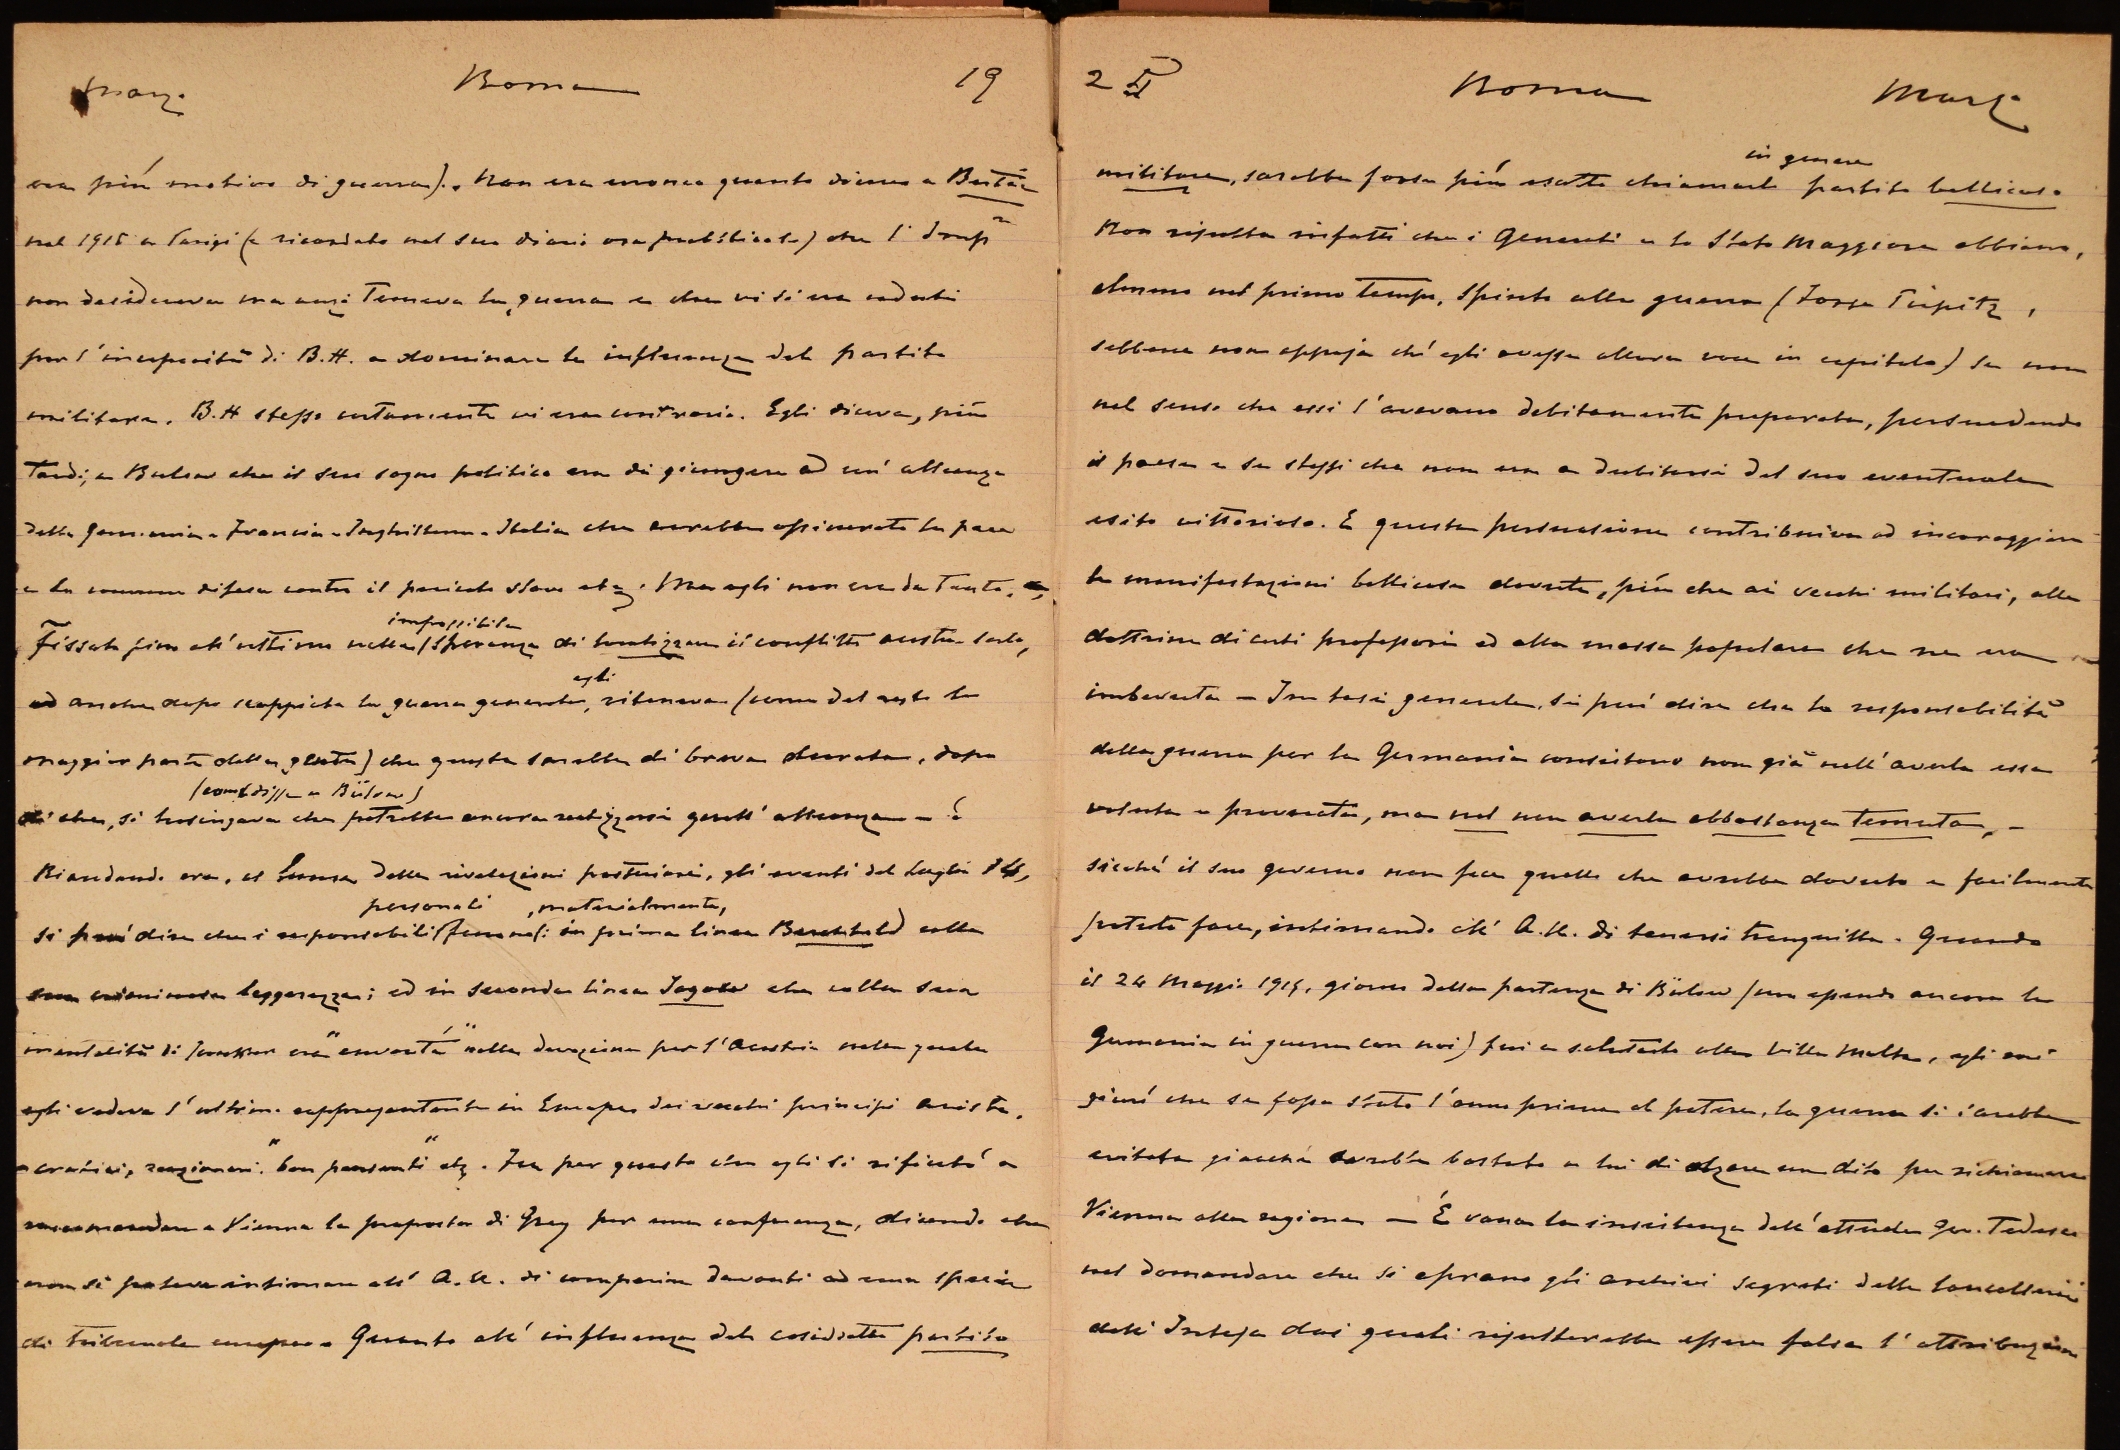 Marzo Roma 19
era più motivo di guerra). Non era erroneo quanto dicevo a Bertie
nel 1915 a Parigi (e ricordato nel suo diario ora pubblicato) che l'Imp.re
non desiderava ma anzi temeva la guerra e che vi si era
per l'incapacità di B.H. a dominare la influenza del partito
militare. B.H stesso certamente vi era contrario. Egli diceva, più
tardi, a Bulow che il suo sogno politico era di giungere ad un'alleanza
della Germania-Francia-Inghilterra-Italia che avrebbe assicurato la pace
e la comune difesa contro il pericolo slavo etc. Ma egli non era da tanto.
Fissato fino all'ultimo nella impossibile speranza di localizzare il conflitto austro serbo,
ed anche dopo scoppiata la guerra generale, egli riteneva (come del resto la
maggior parte della gente) che questa sarebbe di breve durata, dopo
di che, (com'disse a Bülow) si lusingava che potrebbe ancora realizzarsi quell'alleanza —
Riandando ora, al lume delle rivelazioni posteriori, gli eventi del Luglio 14,
si può dire che i responsabili personali, materialmente, furono: in prima linea Berchtold colla
sua leggerezza; ed in seconda linea Jagow che colla sua
mentalità di Junker era "nella devozione per l'Austria nella quale
egli vedeva l'ultimo rappresentante in Europa dei vecchi principi aristo-
cratici, reazionari, "ben pensanti" etc. Fu per questo che egli si rifiutò a
raccomandare a Vienna la proposta di Grey per una conferenza, dicendo che
non si poteva intimare all'A.U. di comparire davanti ad una specie
di tribunale europeo. Quanto all'influenza del cosiddetto partito
2 Roma Marzo
militare, sarebbe forse più esatto chiamarlo in genere partito bellicoso
Non risulta infatti che i Generali e lo Stato Maggiore abbiano,
almeno nel primo tempo, spinto alla guerra (forse Tirpitz,
sebbene non appaja ch'egli avesse allora voce in capitolo) se non
nel senso che essi l'avevano debitamente preparata, persuadendo
il paese e se stessi che non era a dubitarsi del suo eventuale
esito vittorioso. E questa persuasione contribuiva ad incoraggiare
le manifestazioni bellicose dovute, più che ai vecchi militari, alle
dottrine di certi professori ed alla massa popolare che ne era
imbevuta — In tesi generale, si può dire che la responsabilità
della guerra per la Germania consistono non già nell'averla essa
voluta e provocata, ma nel non averla abbastanza temuta, -
sicché il suo governo non fece quello che avrebbe dovuto e facilmente
potuto fare, intimando all'A.U. di tenersi tranquilla. Quando
il 24 Maggio 1915, giorno della partenza di Bülow (non essendo ancora la
Germania in guerra con noi) fui a salutarlo alla Villa Malta, egli mi
giurò che se fosse stato l'anno prima al potere, la guerra si sarebbe
evitata giacché sarebbe bastato a lui di alzare un dito per richiamare
Vienna alla ragione — È vana la insistenza dell'attuale gov. Tedesco
nel domandare che si aprano gli archivi segreti delle Cancellerie
dell'Intesa dai quali risulterebbe essere falsa l'attribuzione